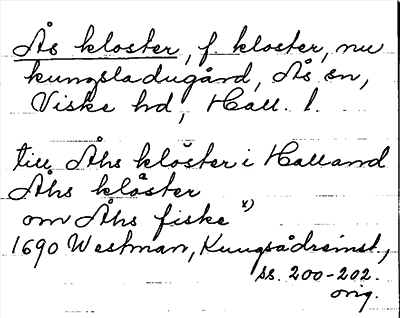 Ås kloster, f. kloster, nu
kungsladugård, Ås sn,
Viske hd, Hall. l.
till Åhs klöster i Halland
Åhs klöster
om Åhs fiske x)
1690 Westman, Kungsådreinst.,
ss. 200-202.
orig.